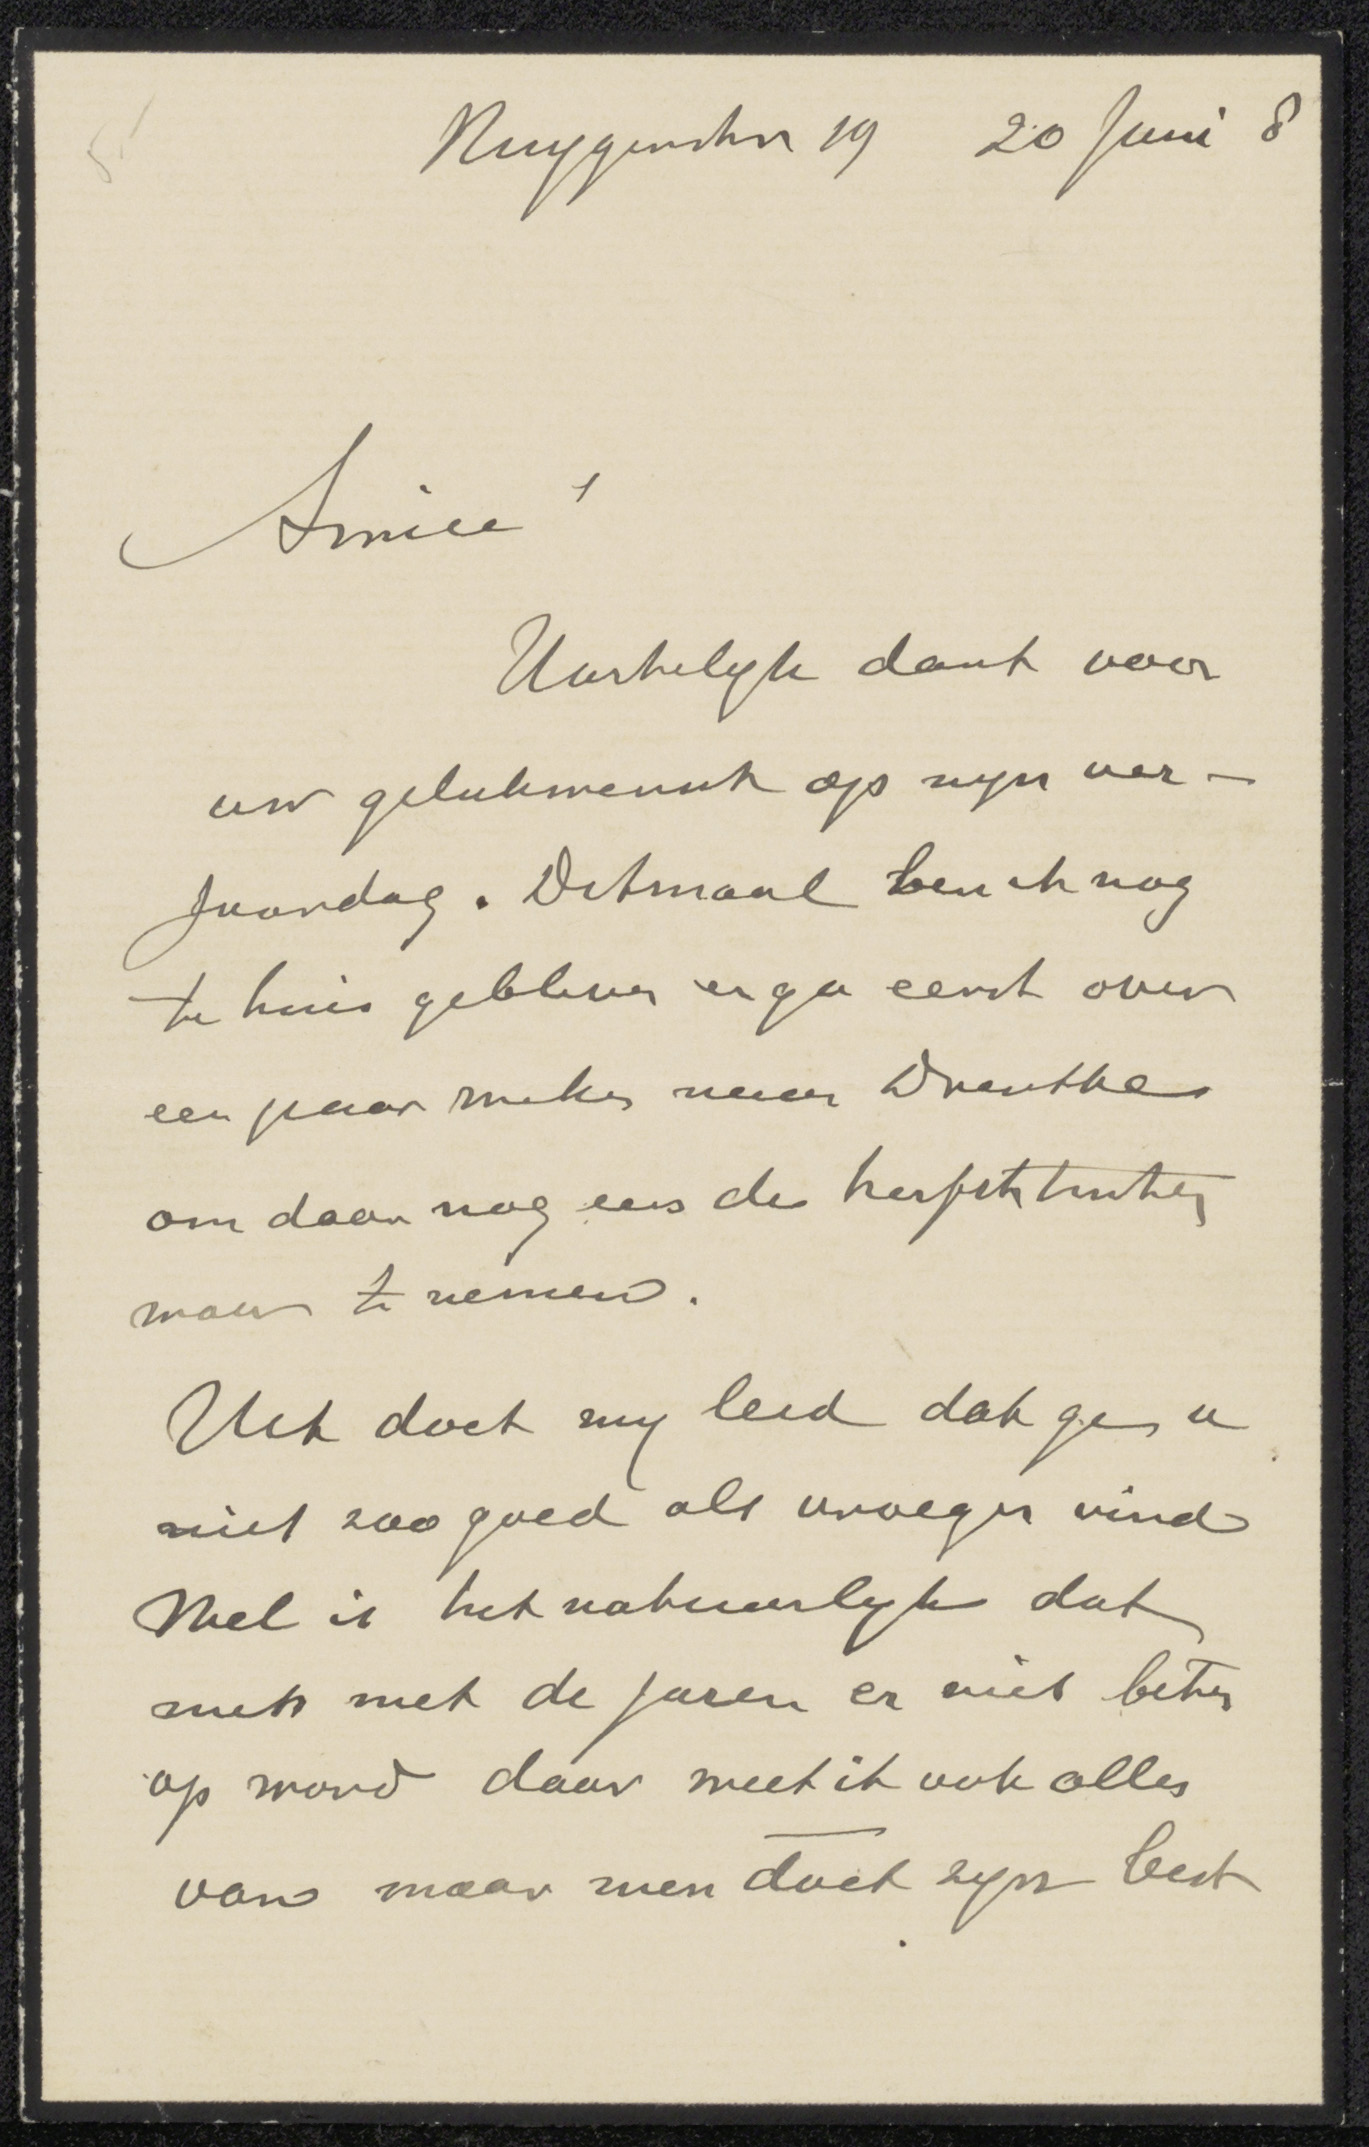 Huygenstr 19 20 Juni 8
Amice!
Hartelyk dank voor
uw gelukwensch op myn ver-
jaardag. Ditmaal ben ik nog
te huis gebleven en ga eerst over
een paar weken naar Drenthe
om daar nog eens de herfst tinten
waar te nemen.
Het doet my leed dat ge u
niet zoo goed als vroeger vind
Wel is het natuurlyk dat
men met de jaren er niet beter
op word daar weet ik ook alles
van maar men doet zyn best